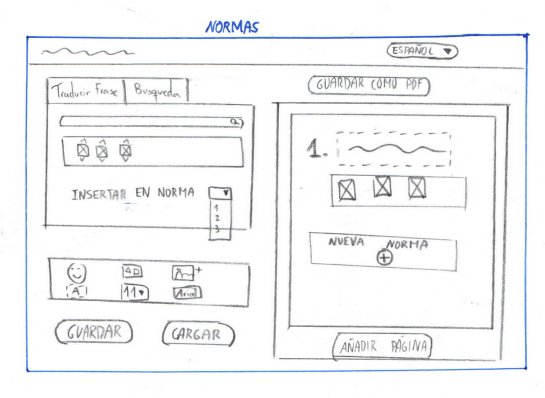 NORMAS
ESPAÑOL
Traducir Frase
Busqueda
INSERTAR EN NORMA
1
2
3
A
11
Arial
GUARDAR
CARGAR
GUARDAR COMO PDF
1.
NUEVA NORMA
AÑADIR PÁGINA